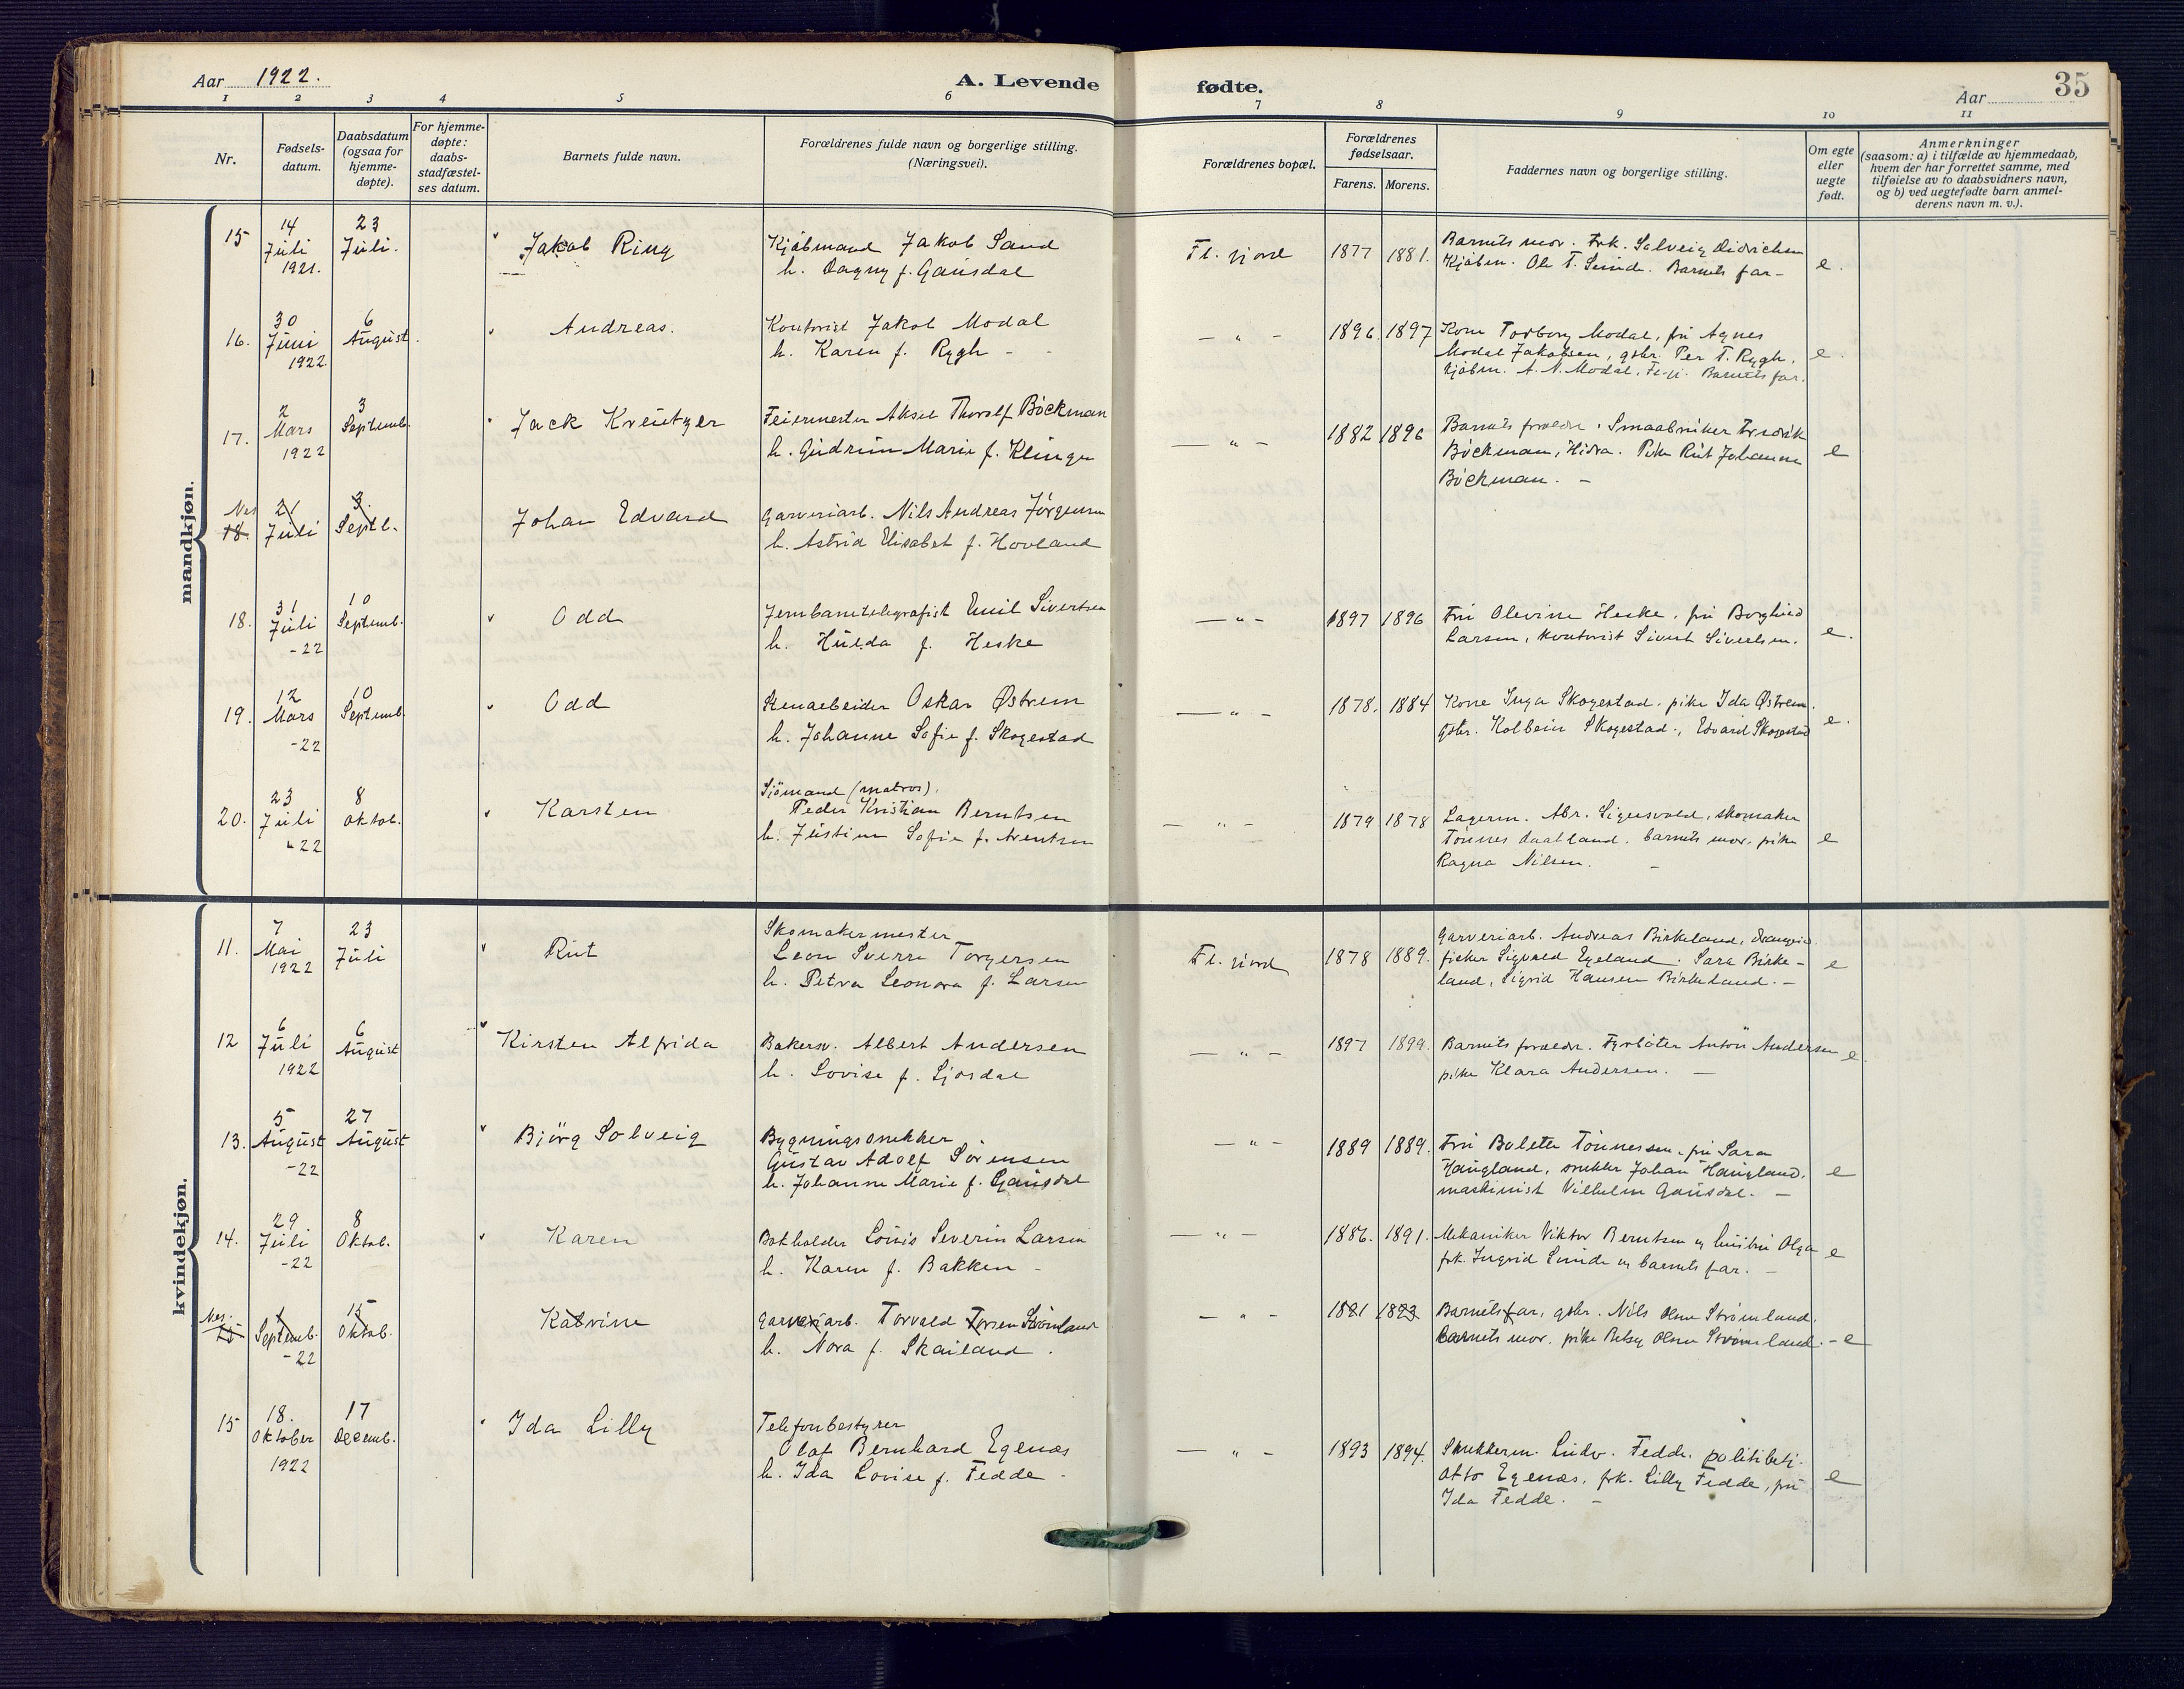 Aar 1922.
A. Levende fødte.
Aar
35
1 2 3 4 5 6 7 8 9 10 11
Nr.
Fødsels-
datum.
Daabsdatum
(ogsaa for
hjemme-
døpte).
For hjemme-
døpte:
daabs-
stadfæstel-
ses datum.
Barnets fulde navn.
Forældrenes fulde navn og borgerlige stilling.
(Næringsvei).
Forældrenes bopæl.
Forældrenes
fødselsaar.
Farens. Morens.
Faddernes navn og borgerlige stilling.
Om egte
eller
uegte
født.
Anmerkninger
(saasom: a) i tilfælde av hjemmedaab,
hvem der har forrettet samme, med
tilføielse av to daabsvidners navn,
og b) ved uegtefødte barn anmel-
derens navn m. v.).
mandkjøn.
15
14
Juli
1921.
23
Juli.
Jakob Ring
Kjøbmand Jakob Sand
h. Dagny f. Gausdal
Fl. fjord
1877 1881.
Barnets mor. Frk. Solveig Didrichsen
Kjøbm. Ole T. Sunde. Barnets far -
e.
16.
30
Juni
1922.
6
August.
Andreas.
Kontorist Jakob Modal
h. Karen f. Rygh - -
- " -
1896. 1897
Kone Torborg Modal, fru Agnes
Modal Jakobsen, gbr. Per T. Rygh,
kjøbm. A. N. Modal, Fl.fj. Barnets far.
e.
17.
2
Mars
1922
3
Septemb.
Jack Kreutzer
Feiermester Aksel Thoralf Böckman
h. Gudrun Marie f. Klinge
- " -
1882 1896
Barnets forældr. Smaabruker Fredrik
Böckman, Hidra. Pike Rut Johanne
Böckman. -
e
Nes
18.
21
Juli
3.
Septb.
Johan Edvard
Garveriarb. Nils Andreas Jørgensen
h. Astrid Elisabet f. Hovland
18.
31
Juli
-22
10
Septemb.
Odd
Jernbanetelegrafist Emil Sivertsen
h. Hulda f. Heske
- " -
1897 1896
Fru Olevine Heske, fru Borghild
Larsen, kontorist Sivert Sivertsen.
e.
19.
12
Mars
-22
10
Septemb.
Odd
Stenarbeider Oskar Østrem
h. Johanne Sofie f. Skogestad
- " -
1878. 1884
Kone Inga Skogestad. pike Ida Østrem.
gbr. Kolbein Skogestad., Edvard Skogestad
e.
20.
23
Juli
-22
8
oktob.
Karsten
Sjömand (matros).
Peder Kristian Berntsen
h. Justine Sofie f. Arentsen
- " -
1879 1878
Lagerm. Abr. Sigersvold, skomaker
Tönnes Daatland. barnets mor. pike
Ragna Nilsen. -
e
kvindekjøn.
11.
7
Mai
1922
23
Juli
Rut
Skomakermester
Leon Sverre Torgersen
h. Petra Leonora f. Larsen
Fl. fjord
1878 1889.
Garveriarb. Andreas Birkeland, Drangeid
fisker Sigvald Egeland. Sara Birke-
land, Sigrid Hansen Birkeland. -
e
12
6
Juli
1922
6
August
Kirsten Alfrida
Bakersv. Albert Andersen
h. Lovise f. Ljosdal
- " -
1897 1899.
Barnets forældr. Fyrböter Anton Andersen
pike Klara Andersen. -
e.
13.
5
August
-22
27
August
Björg Solveig
Bygningssnekker
Gustav Adolf Sörensen
h. Johanne Marie f. Gausdal
- " -
1889 1889.
Fru Bolette Tönnessen, fru Sara
Haugland, snekker Johan Haugland.
maskinist Vilhelm Gausdal. -
e
14.
29
Juli
-22
8
Oktob.
Karen
Bokholder Louis Severin Larsen
h. Karen f. Bakken -
- " -
1886. 1891.
Mekaniker Viktor Berntsen og hustru Olga
frk. Ingrid Sunde og barnets far. -
e
Nes.
15
1
Septemb.
-22
15
Oktob.
Katrine
Garveriarb. Torvald Torsen Strømland
h. Nora f. Skailand.
- " -
1821 1823
Barnets far, gbr. Nils Olsen Strømland.
barnets mor. pike Betsy Olsen Strømland. -
e
15
18.
oktober
1922
17
Decemb.
Ida Lilly
Telefonbestyrer
Olaf Bernhard Egenæs
h. Ida Lovise f. Fedde -
- " -
1893 1894.
Snekkerm. Ludv. Fedde. politibetj.
Otto Egenæs, frk. Lilly Fedde, fru
Ida Fedde. -
e